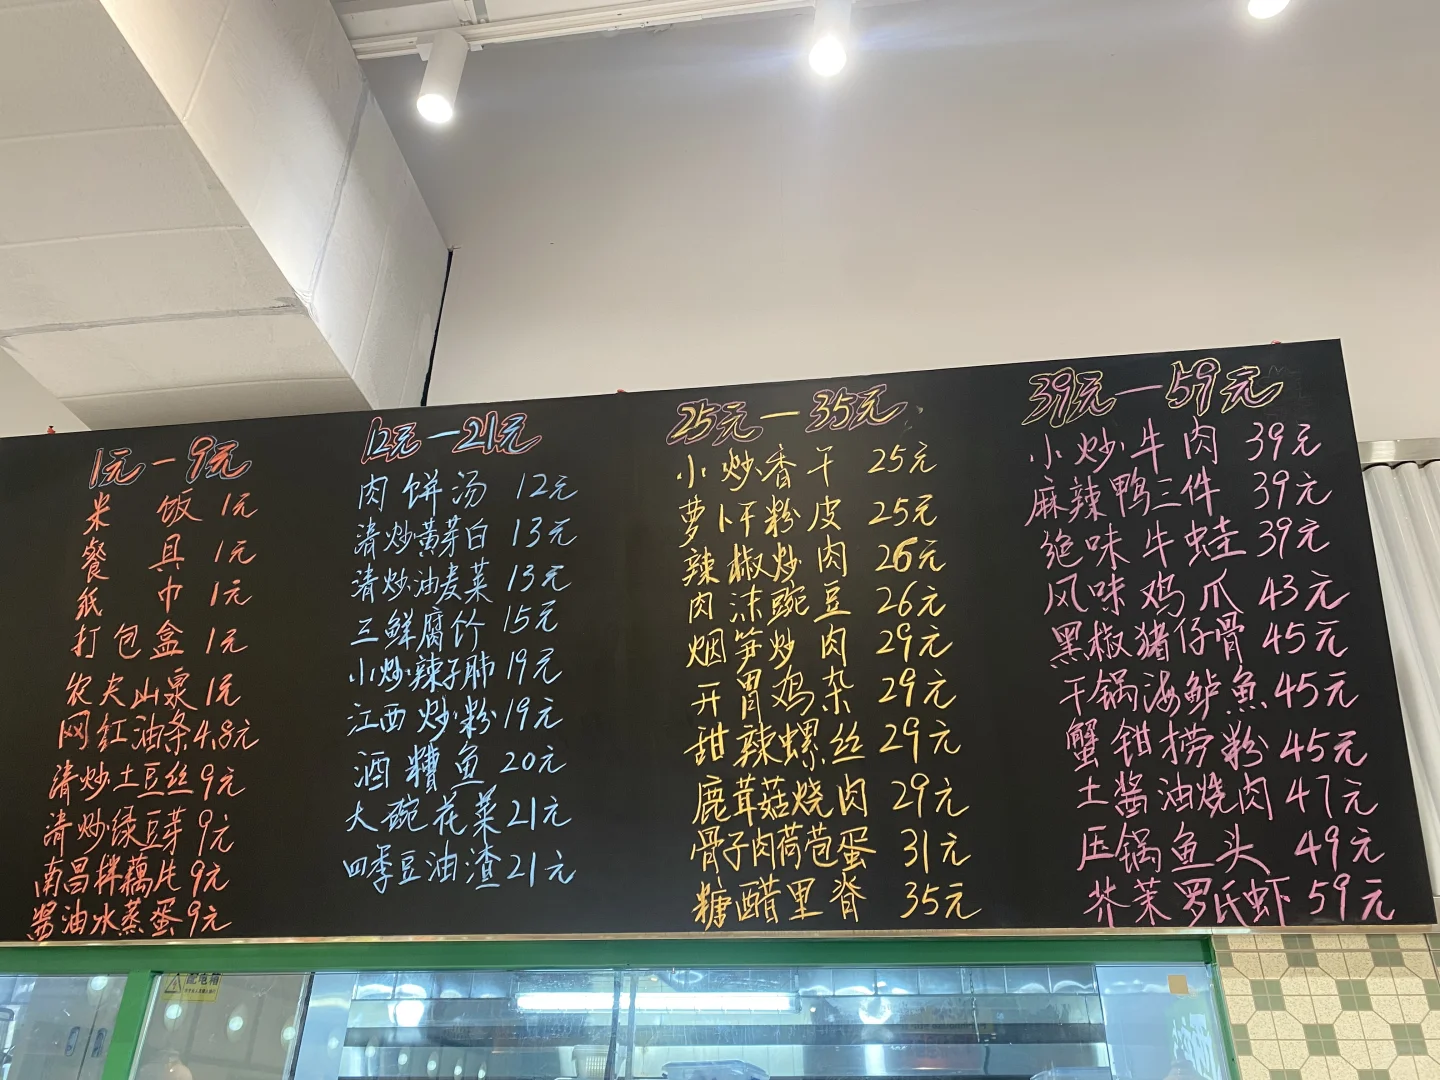 1元-9元
米饭 1元
餐具 1元
纸巾 1元
打包盒 1元
农夫山泉 1元
网红油条 4.8元
清炒土豆丝 9元
清炒绿豆芽 9元
南昌拌藕片 9元
酱油水蒸蛋 9元
12元-21元
肉饼汤 12元
清炒黄芽白 13元
清炒油麦菜 13元
三鲜腐竹 15元
小炒辣子肺 19元
江西炒粉 19元
酒糟鱼 20元
大碗花菜 21元
四季豆油渣 21元
25元-35元
小炒香干 25元
萝卜干粉皮 25元
辣椒炒肉 26元
肉沫豌豆 26元
烟笋炒肉 29元
开胃鸡杂 29元
甜辣螺丝 29元
鹿茸菇烧肉 29元
骨子肉荷苞蛋 31元
糖醋里脊 35元
39元-59元
小炒牛肉 39元
麻辣鸭三件 39元
绝味牛蛙 39元
风味鸡爪 43元
黑椒猪仔骨 45元
干锅海鲈魚 45元
蟹钳捞粉 45元
土酱油烧肉 47元
压锅鱼头 49元
芥茉罗氏虾 59元
配电箱